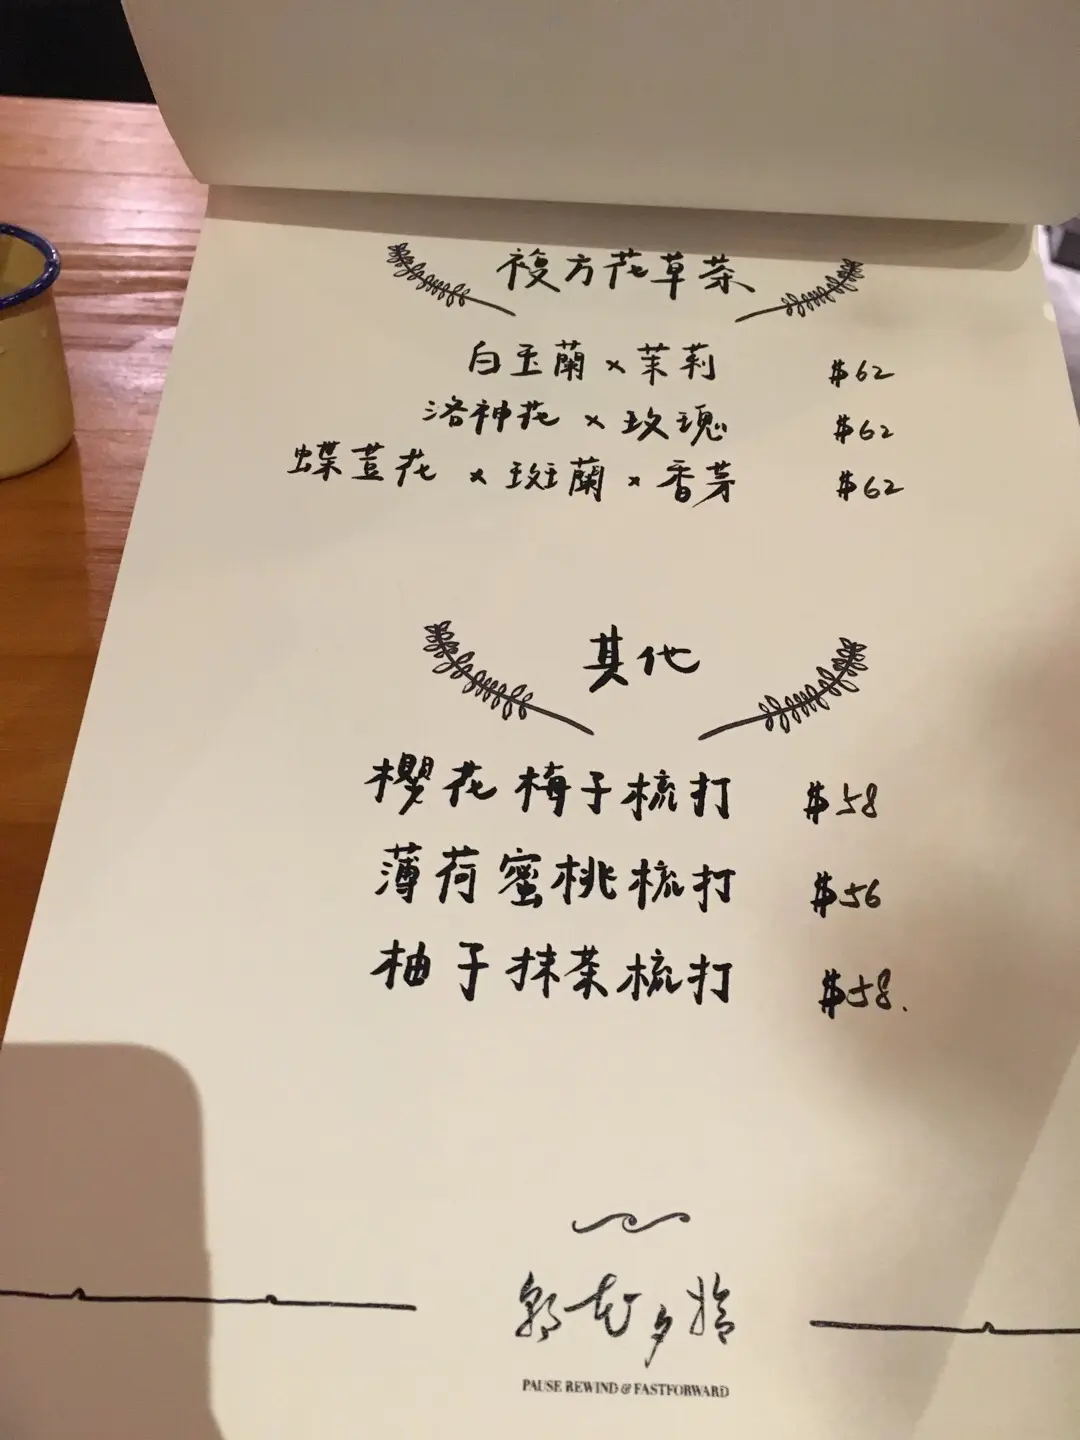 複方花草茶
白玉蘭 × 茉莉 $62
洛神花 × 玫瑰 $62
蝶荳花 × 斑蘭 × 香芽 $62
其他
櫻花梅子梳打 $58
薄荷蜜桃梳打 $56
柚子抹茶梳打 $58.
朝花夕拾
PAUSE REWIND & FASTFORWARD